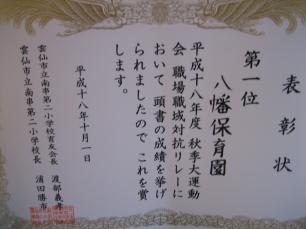 表彰状
第一位
八幡保育園
平成十八年度 秋季大運動
会 職場職域対抗リレーに
おいて 頭書の成績を挙げ
られましたので これを賞
します。
平成十八年十月一日
雲仙市立南串第二小学校育友会長 渡部義孝
雲仙市立南串第二小学校長 浦田勝市